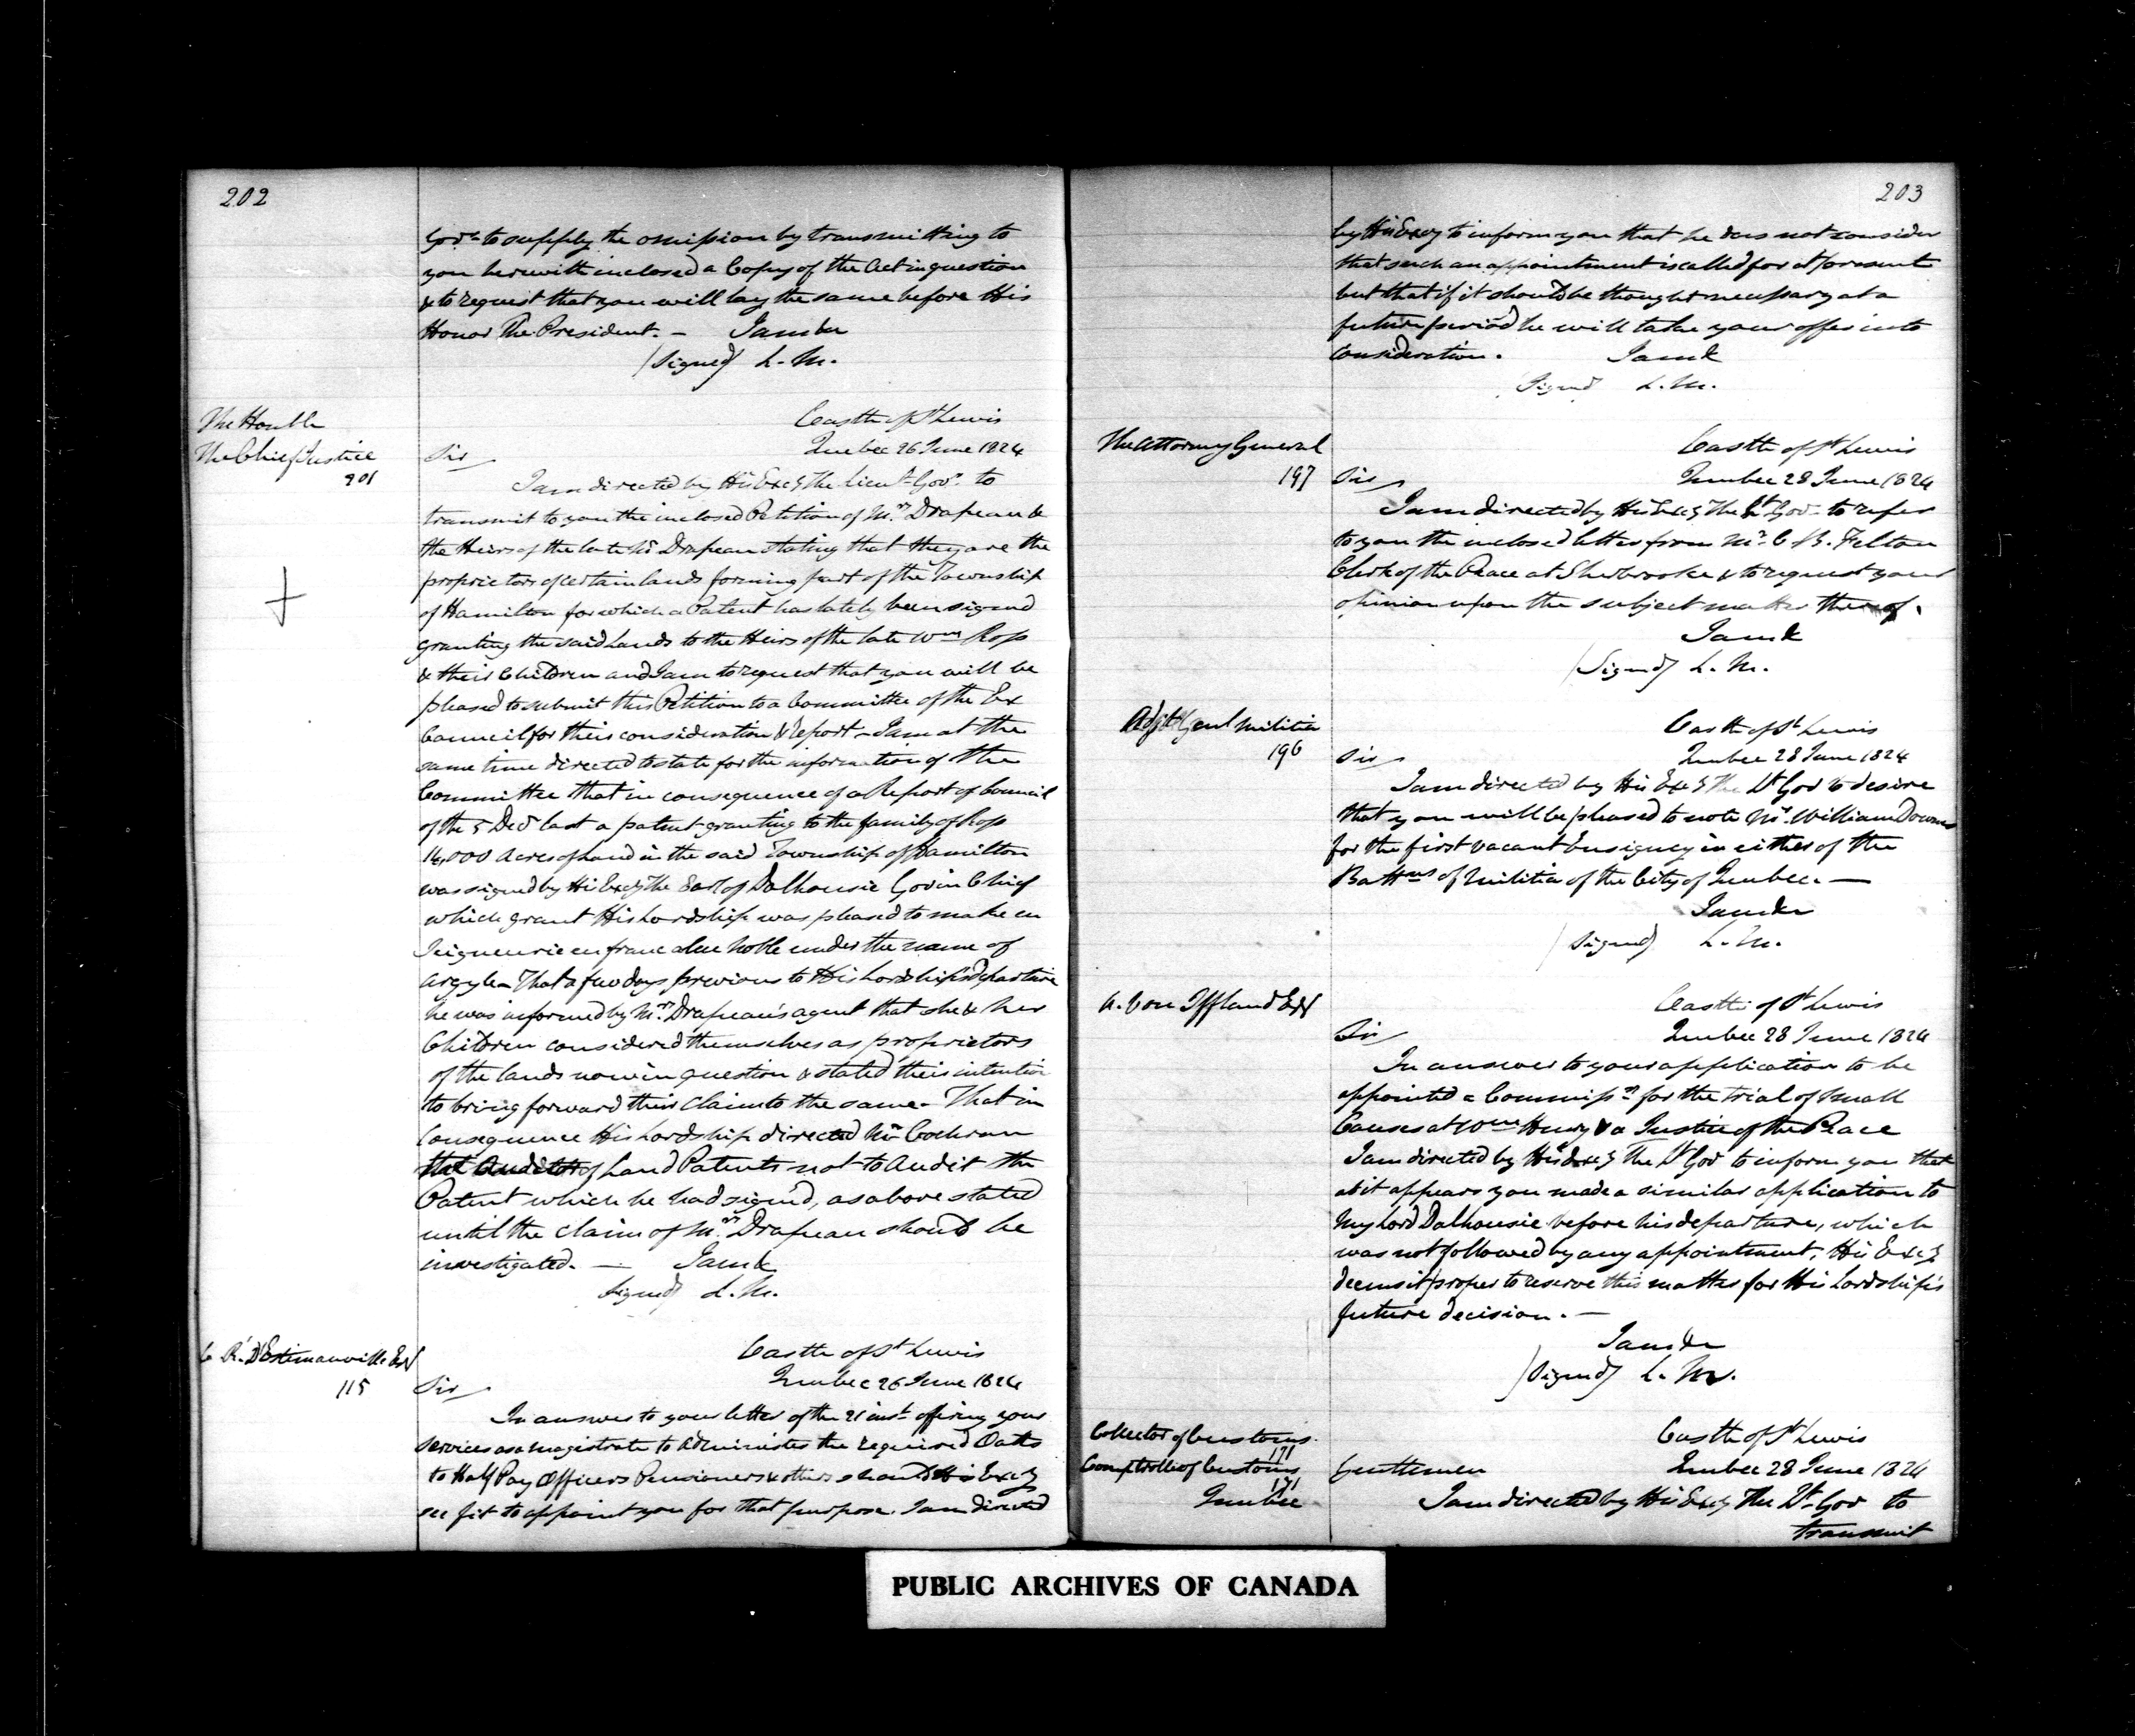 202
Govr. to supply the omission by transmitting to
you herewith inclosed a Copy of the Act in question
& to request that you will lay the same before His
Honor The President. — I am &c
(Signed) L. M.
The Honble
The Chief Justice
201
Castle of St Lewis
Quebec 26 June 1824
Sir
I am directed by His Excy The Lieut. Govr. to
transmit to you the inclosed Petition of Mrs. Drapeau &
the Heirs of the late Mr Drapeau stating that they are the
proprietors of certain lands forming part of the Township
of Hamilton for which a Patent has lately been signed
granting the said Lands to the Heirs of the late Wm Ross
& their Children and I am to request that you will be
pleased to submit this Petition to a Committee of the Ex
Council for their consideration & Report – I am at the
same time directed to state for the information of the
Committee that in consequence of a Report of Council
of the 5 Decr last a patent granting to the family of Ross
14,000 Acres of Land in the said Township of Hamilton
was signed by His Excy The Earl of Dalhousie Gov in Chief
which grant His Lordship was pleased to make en
Seigneurie en franc aleu Noble under the name of
Argyle – That a few days previous to His Lordship's departure
he was informed by Mrs. Drapeau's agent that she & her
Children considered themselves as proprietors
of the lands now in question & stated their intention
to bring forward their Claim to the same – That in
Consequence His Lordship directed Mr Cochran
the Auditor of Land Patents not to Audit the
Patent which he had signed, as above stated
until the Claim of Mrs. Drapeau should be
investigated. — I am &
Signed) L. M.
C. R. D'Estimauville Esqr
115
Castle of St Lewis
Quebec 26 June 1824
Sir
In answer to your letter of the 21 inst. offering your
services as a magistrate to Administer the required Oaths
to Half Pay Officers Pensioners & others should His Excy
see fit to appoint you for that purpose. I am directed
203
by His Excy to inform you that he does not consider
that such an appointment is called for at present
but that if it should be thought necessary at a
future period he will take your offer into
Consideration. I am &
Signed L. M.
The Attorney General
197
Castle of St Lewis
Quebec 28 June 1824
Sir
I am directed by His Excy The Lt Gov – to refer
to you the inclosed letter from Mr. C. B. Felton
Clerk of the Peace at Sherbrooke & to request your
opinion upon the subject matter thereof.
I am &
(Signed) L. M.
Adjt Genl Militia
196
Castle of St Lewis
Quebec 28 June 1824
Sir
I am directed by His Excy The Lt Gov to desire
that you will be pleased to note Mr. William Downes
for the first vacant Ensigncy in either of the
Battns of Militia of the City of Quebec. —
I am &c
(Signed) L. M.
A. Von Iffland Esqr
Castle of St Lewis
Quebec 28 June 1824
Sir
In answer to your application to be
appointed a Commissr for the trial of Small
Causes at Wm Henry & a Justice of the Peace
I am directed by His Excy The Lt Gov to inform you that
as it appears you made a similar application to
My Lord Dalhousie before his departure, which
was not followed by any appointment, His Excy
deems it proper to reserve this matter for His Lordship's
future decision. —
I am &c
(Signed) L. M.
Collector of Customs
171
Comptroller of Customs
171
Quebec
Castle of St Lewis
Quebec 28 June 1824
Gentlemen
I am directed by His Excy The Lt Gov to
transmit
PUBLIC ARCHIVES OF CANADA